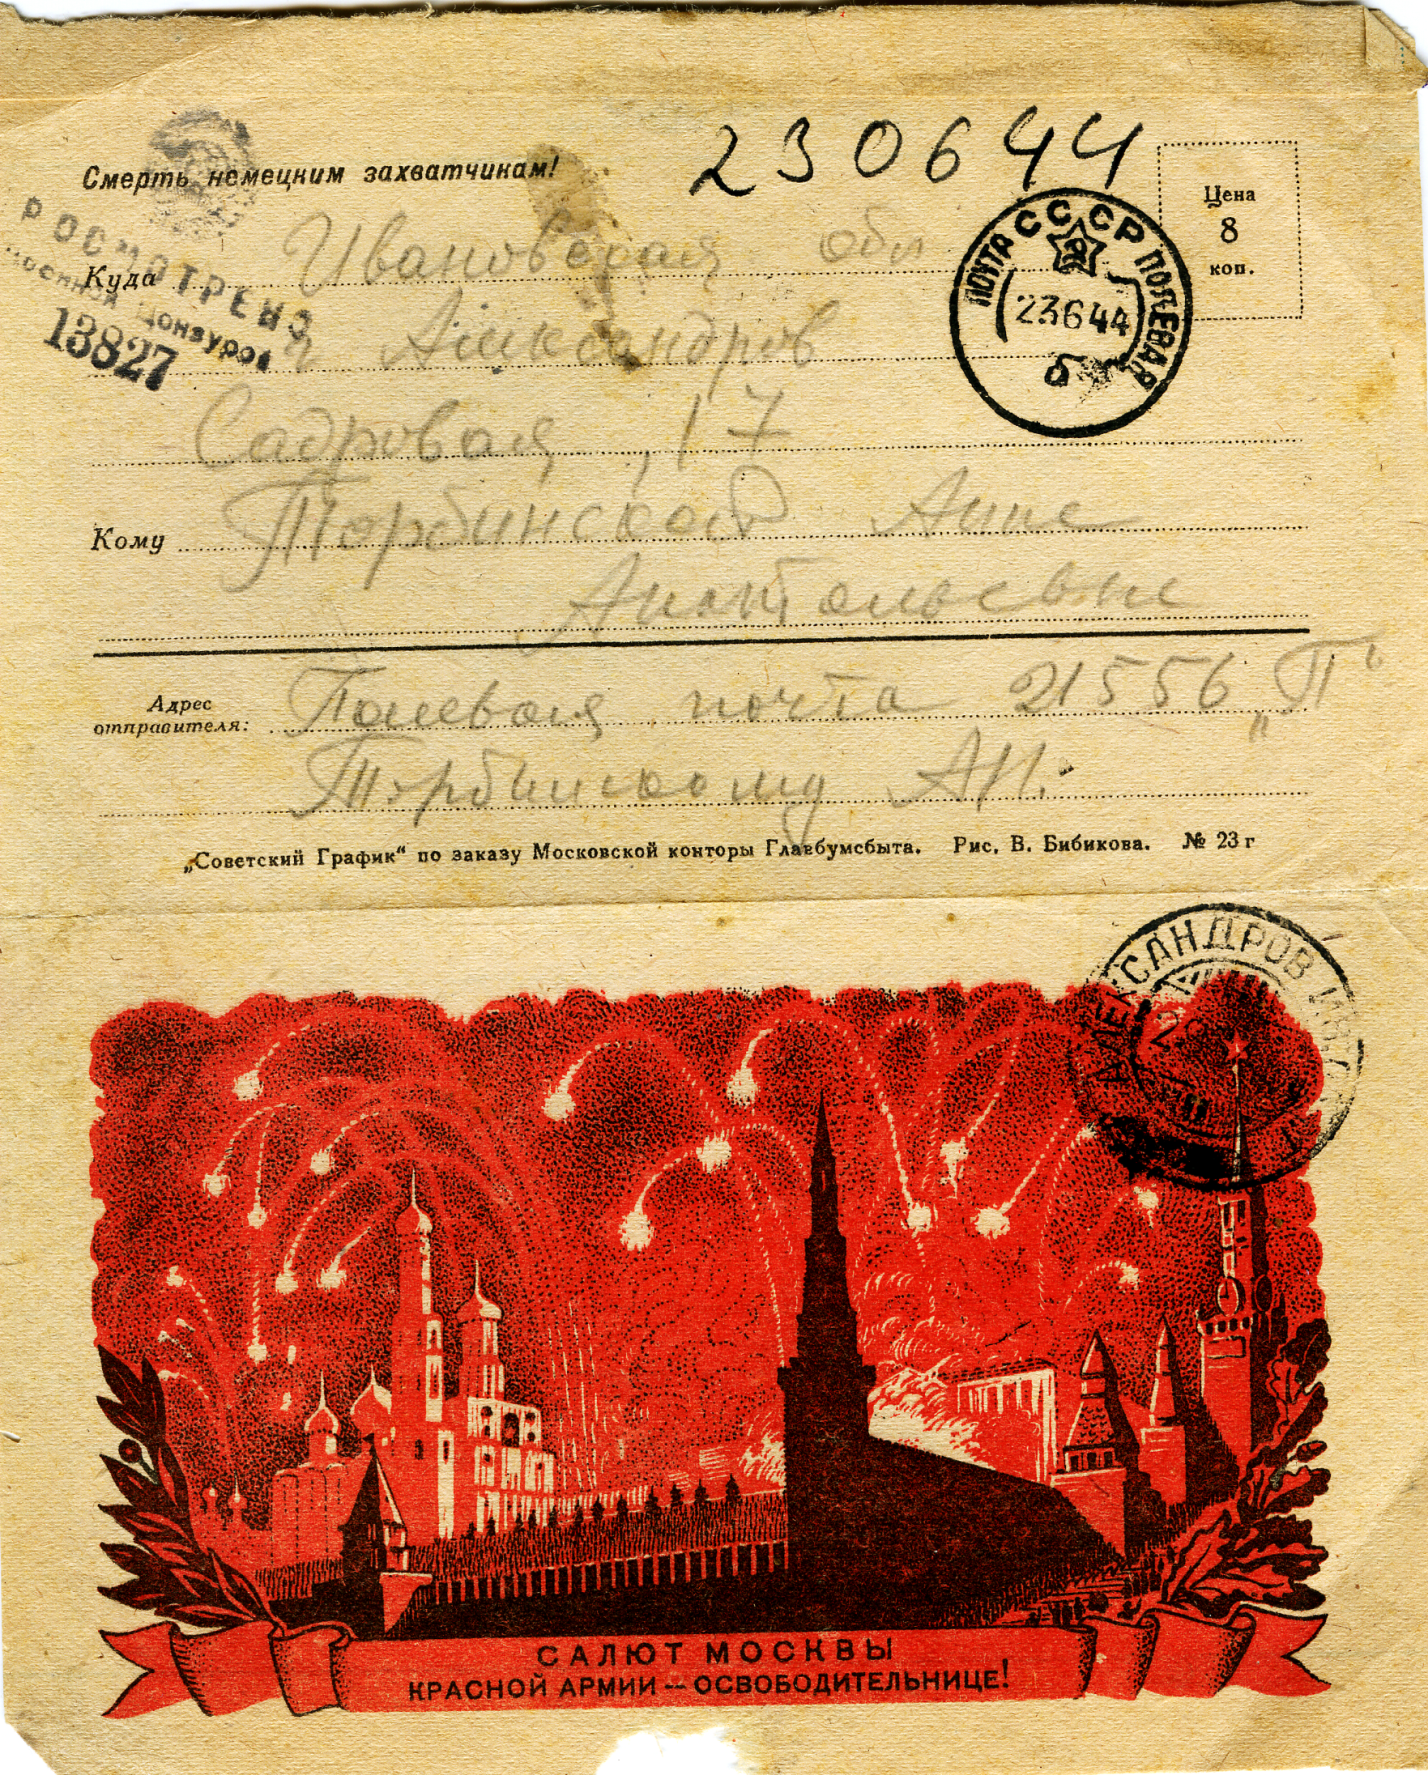 230644
Смерть немецким захватчикам!
Цена
8
коп.
ПРОСМОТРЕНО
Военной Цензурой
13827
ПОЧТА СССР ПОЛЕВАЯ
23644
б
Куда Ивановская обл
г Александров
Садровая, 17
Кому Торбинской Анне
Анатольевне
Адрес
отправителя: Полевая почта 21556 „П“
Торбинскому А.И.
„Советский График“ по заказу Московской конторы Главбумсбыта. Рис. В. Бибикова. № 23 г
АЛЕКСАНДРОВ ИВ.
САЛЮТ МОСКВЫ
КРАСНОЙ АРМИИ — ОСВОБОДИТЕЛЬНИЦЕ!